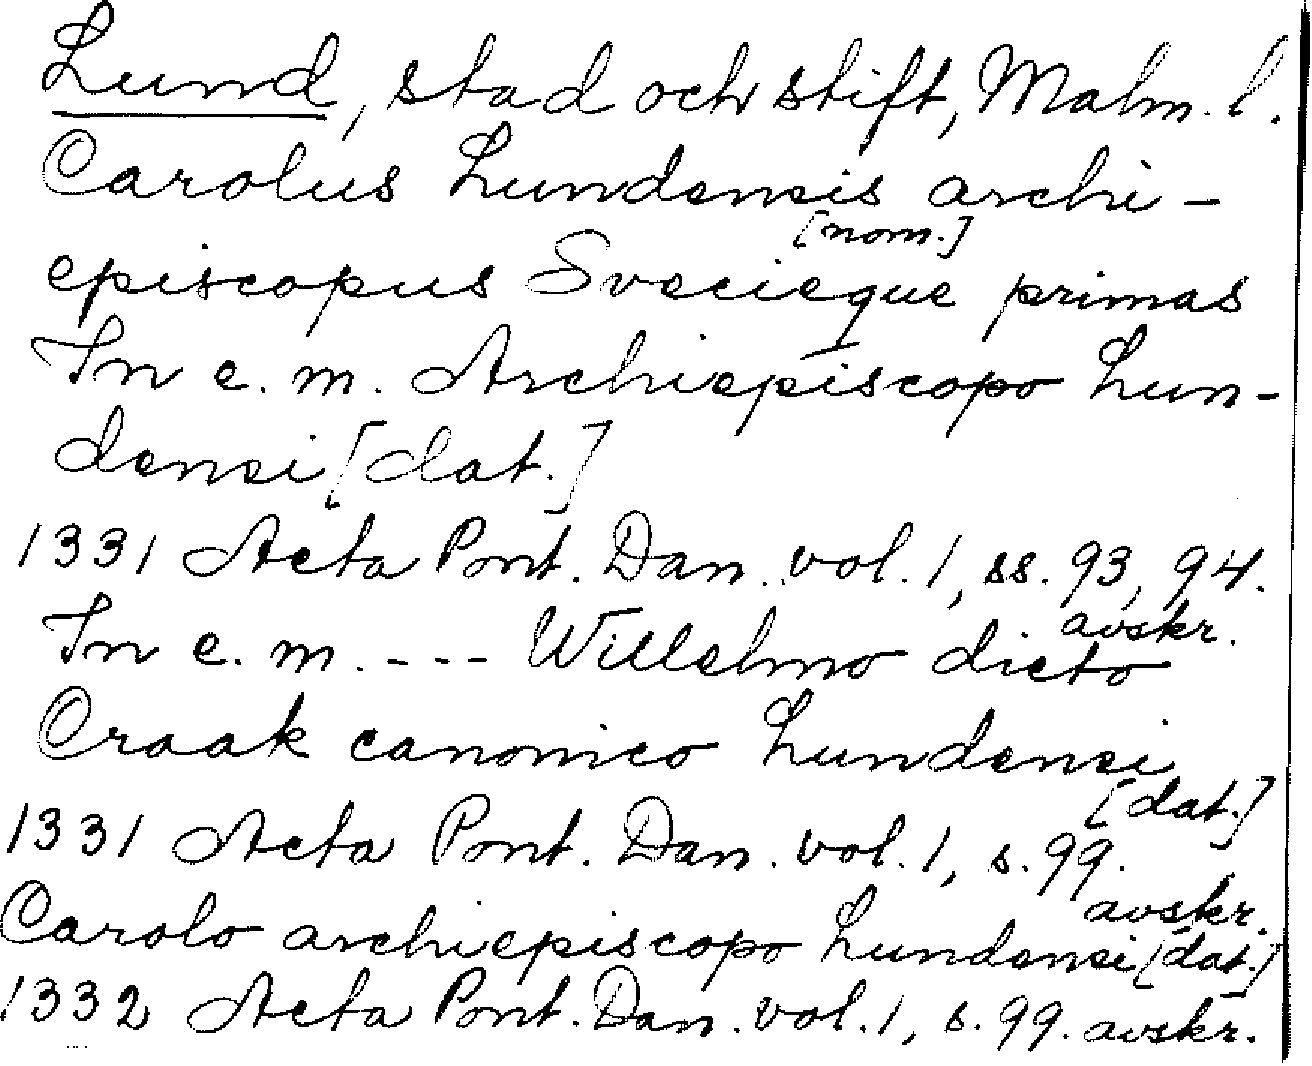 Lund, stad och stift, Malm. l.
Carolus Lundensis archi-
[nom.]
episcopus Svecieque primas
In e. m. Archiepiscopo Lun-
densi [dat.]
1331 Acta Pont. Dan. vol. 1, ss. 93, 94.
avskr.
In e. m. - - - Willelmo dicto
Craak canonico Lundensi
[dat.]
1331 Acta Pont. Dan. vol. 1, s. 99.
avskr.
Carolo archiepiscopo Lundensi [dat.]
1332 Acta Pont. Dan. vol. 1, s. 99. avskr.